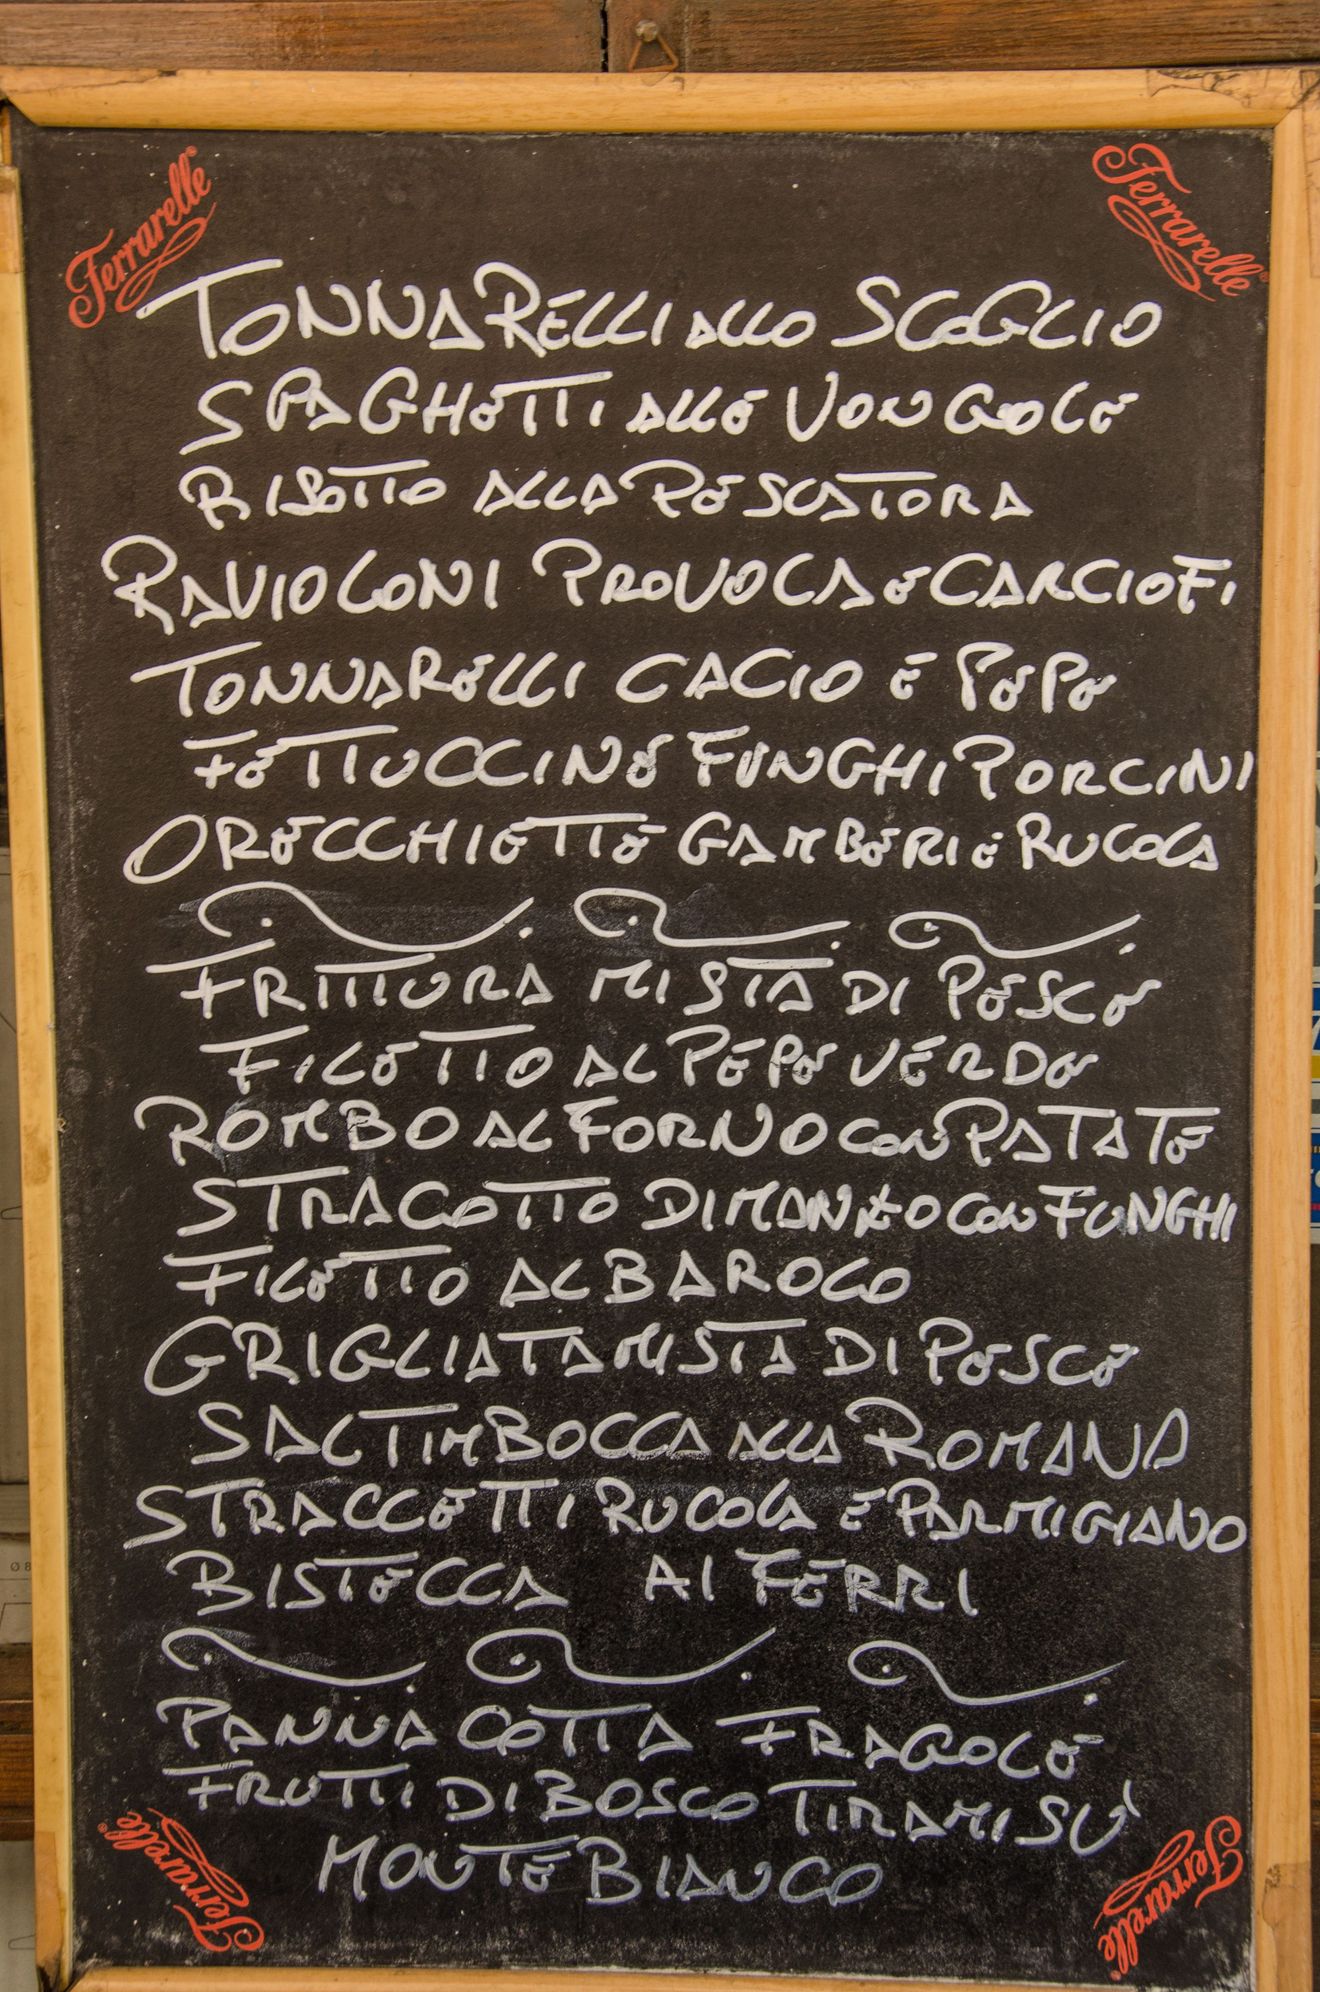 Ferrarelle Ferrarelle
TONNARELLI ALLO SCOGLIO
SPAGHETTI ALLE VONGOLE
RISOTTO ALLA PESCATORA
RAVIOLONI PROVOLA e CARCIOFI
TONNARELLI CACIO E PEPE
FETTUCCINE FUNGHI PORCINI
ORECCHIETTE GAMBERI E RUCOLA
FRITTURA MISTA DI PESCE
FILETTO AL PEPE VERDE
ROMBO AL FORNO CON PATATE
STRACOTTO DI MANZO CON FUNGHI
FILETTO AL BAROLO
GRIGLIATA MISTA DI PESCE
SALTIMBOCCA ALLA ROMANA
STRACCETTI RUCOLA E PARMIGIANO
BISTECCA AI FERRI
PANNA COTTA FRAGOLE
FRUTTI DI BOSCO TIRAMISÙ
MONTE BIANCO
Ferrarelle Ferrarelle